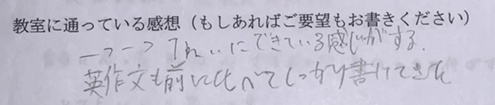 教室に通っている感想（もしあればご要望もお書きください）
一つ一つていねいにできている感じがする.
英作文も前に比べてしっかり書けてきた